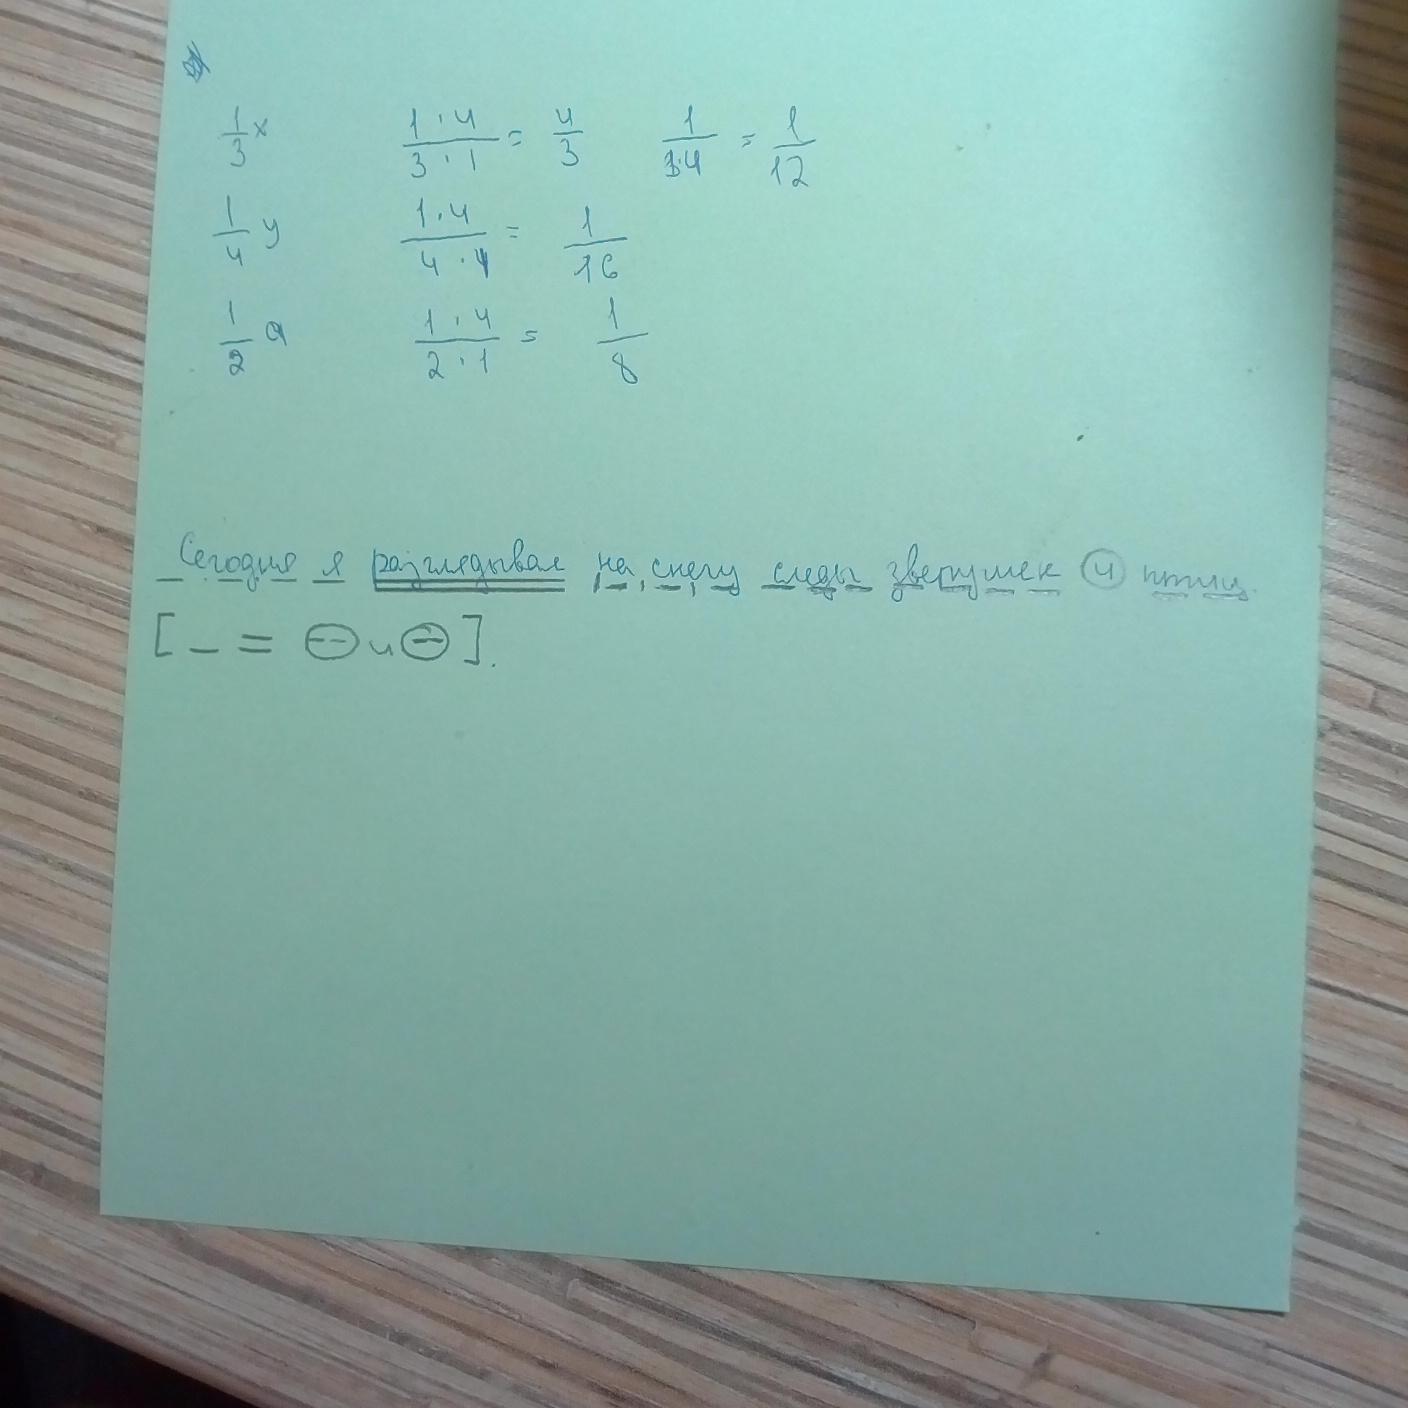 1/3 x   1 · 4 / 3 · 1 = 4/3   1 / 3·4 = 1/12
1/4 y   1 · 4 / 4 · 4 = 1/16
1/2 a   1 · 4 / 2 · 1 = 1/8
Сегодня я разглядывал на снегу следы зверушек и птиц.
[ – = ⊖ и ⊖ ].